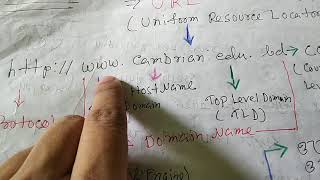 URL
(Uniform Resource Locator
http://www.cambrian.edu.bd
Host Name
Domain
Top Level Domain
(TLD)
Protocol
Domain Name